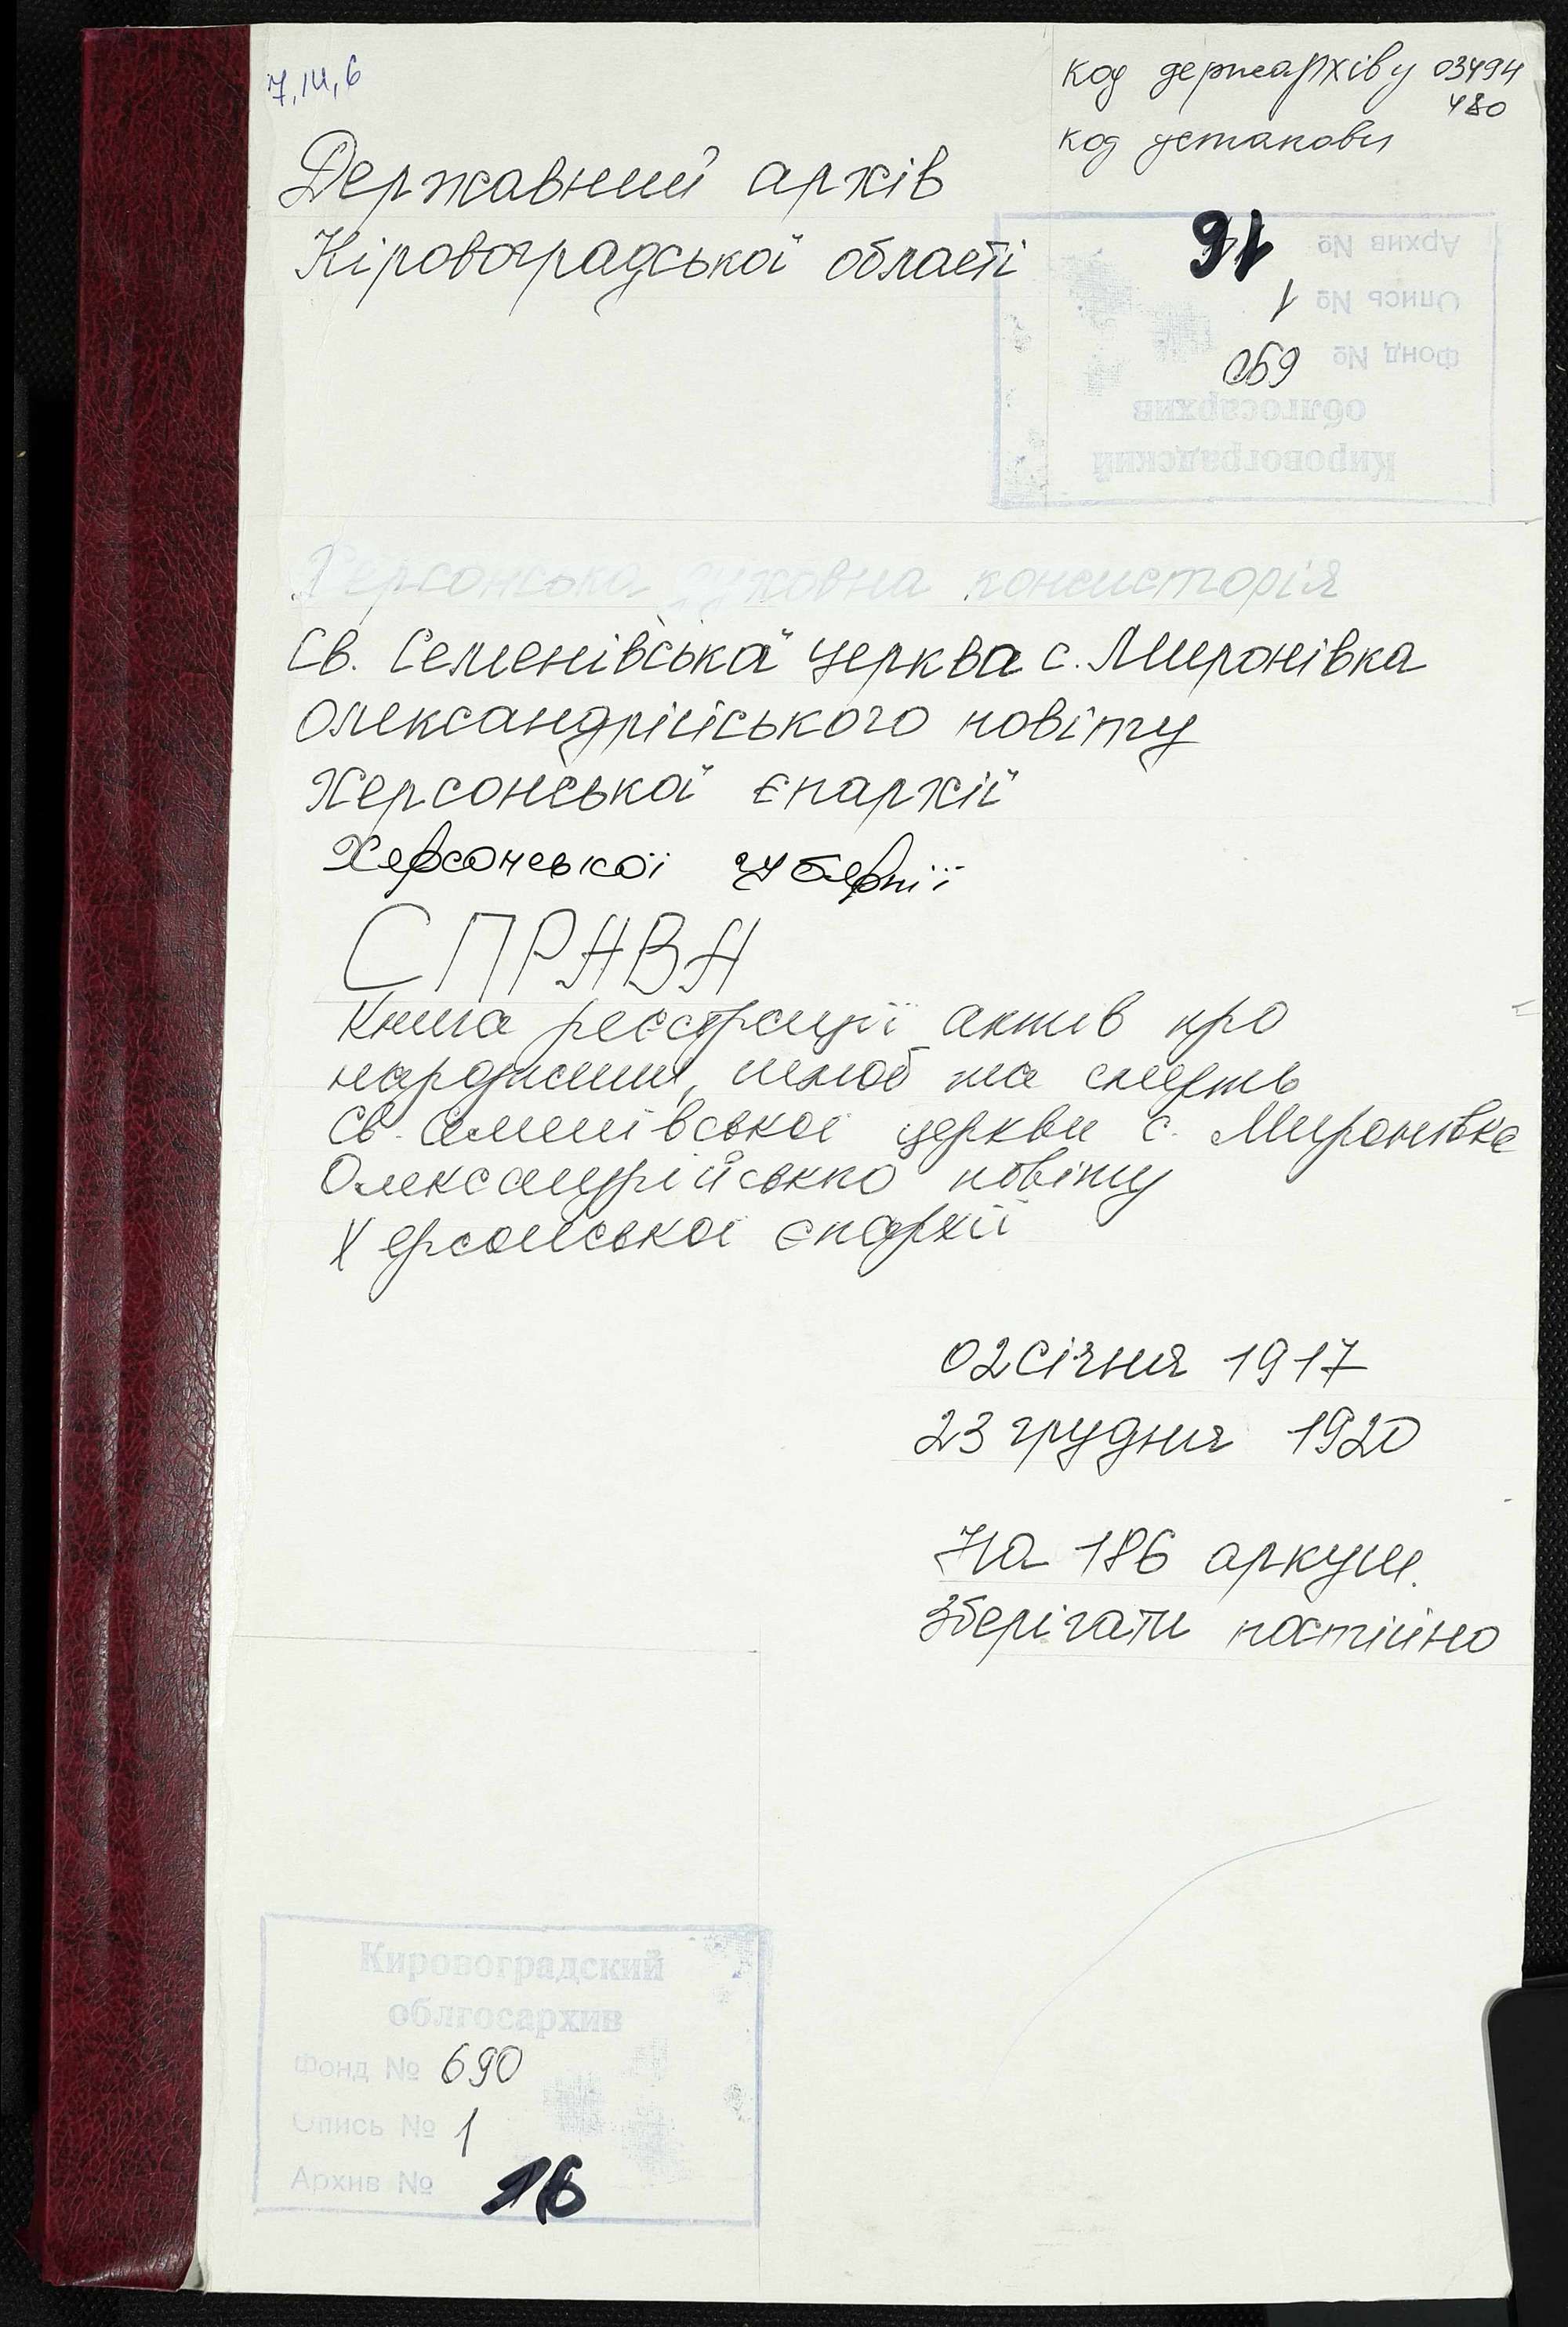 7, 14, 6
код держархіву 03494
480
код установи
Державний архів
Кіровоградської області
Кировоградский
облгосархив
Фонд № 690
Опись № 1
Архив № 16
Херсонська духовна консисторія
Св. Семенівської церква с. Миронівка
Олександрійського повіту
Херсонської єпархії
Херсонської губернії
СПРАВА
Книга реєстрації актів про
народження, шлюб та смерть
Св. Семенівської церкви с. Миронівка
Олександрійсько повіту
Херсонської єпархії
02 січня 1917
23 грудня 1920
На 186 аркуш.
Зберігати постійно
Кировоградский
облгосархив
Фонд № 690
Опись № 1
Архив № 16